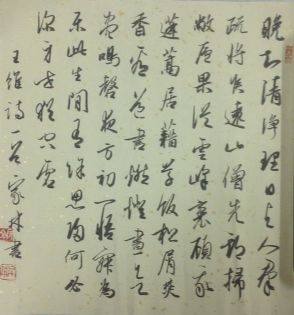 晚知清净理日与人群
疏将候遠山僧先期掃
敝廬果從雲峰裏顧我
蓬蒿居藉草飯松屑焚
香看道書燃燈晝欲
盡鳴磬夜方初一悟寂為
乐此生间有馀思归何必
深身世犹空虚
王维诗一首 家林书